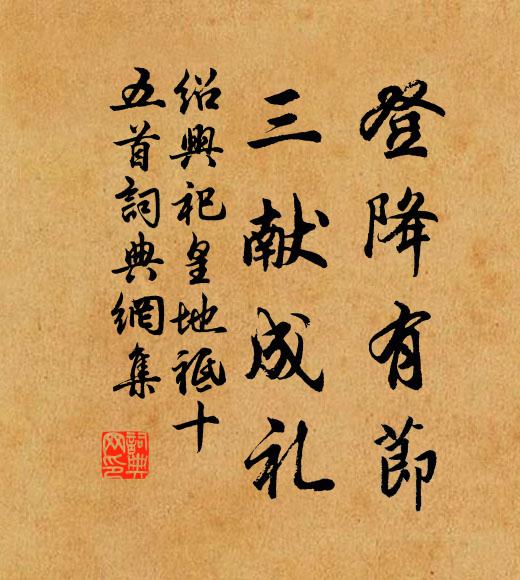 登降有節
三献成礼
绍興祀皇地祗十
五首詞典網集
詞典網印